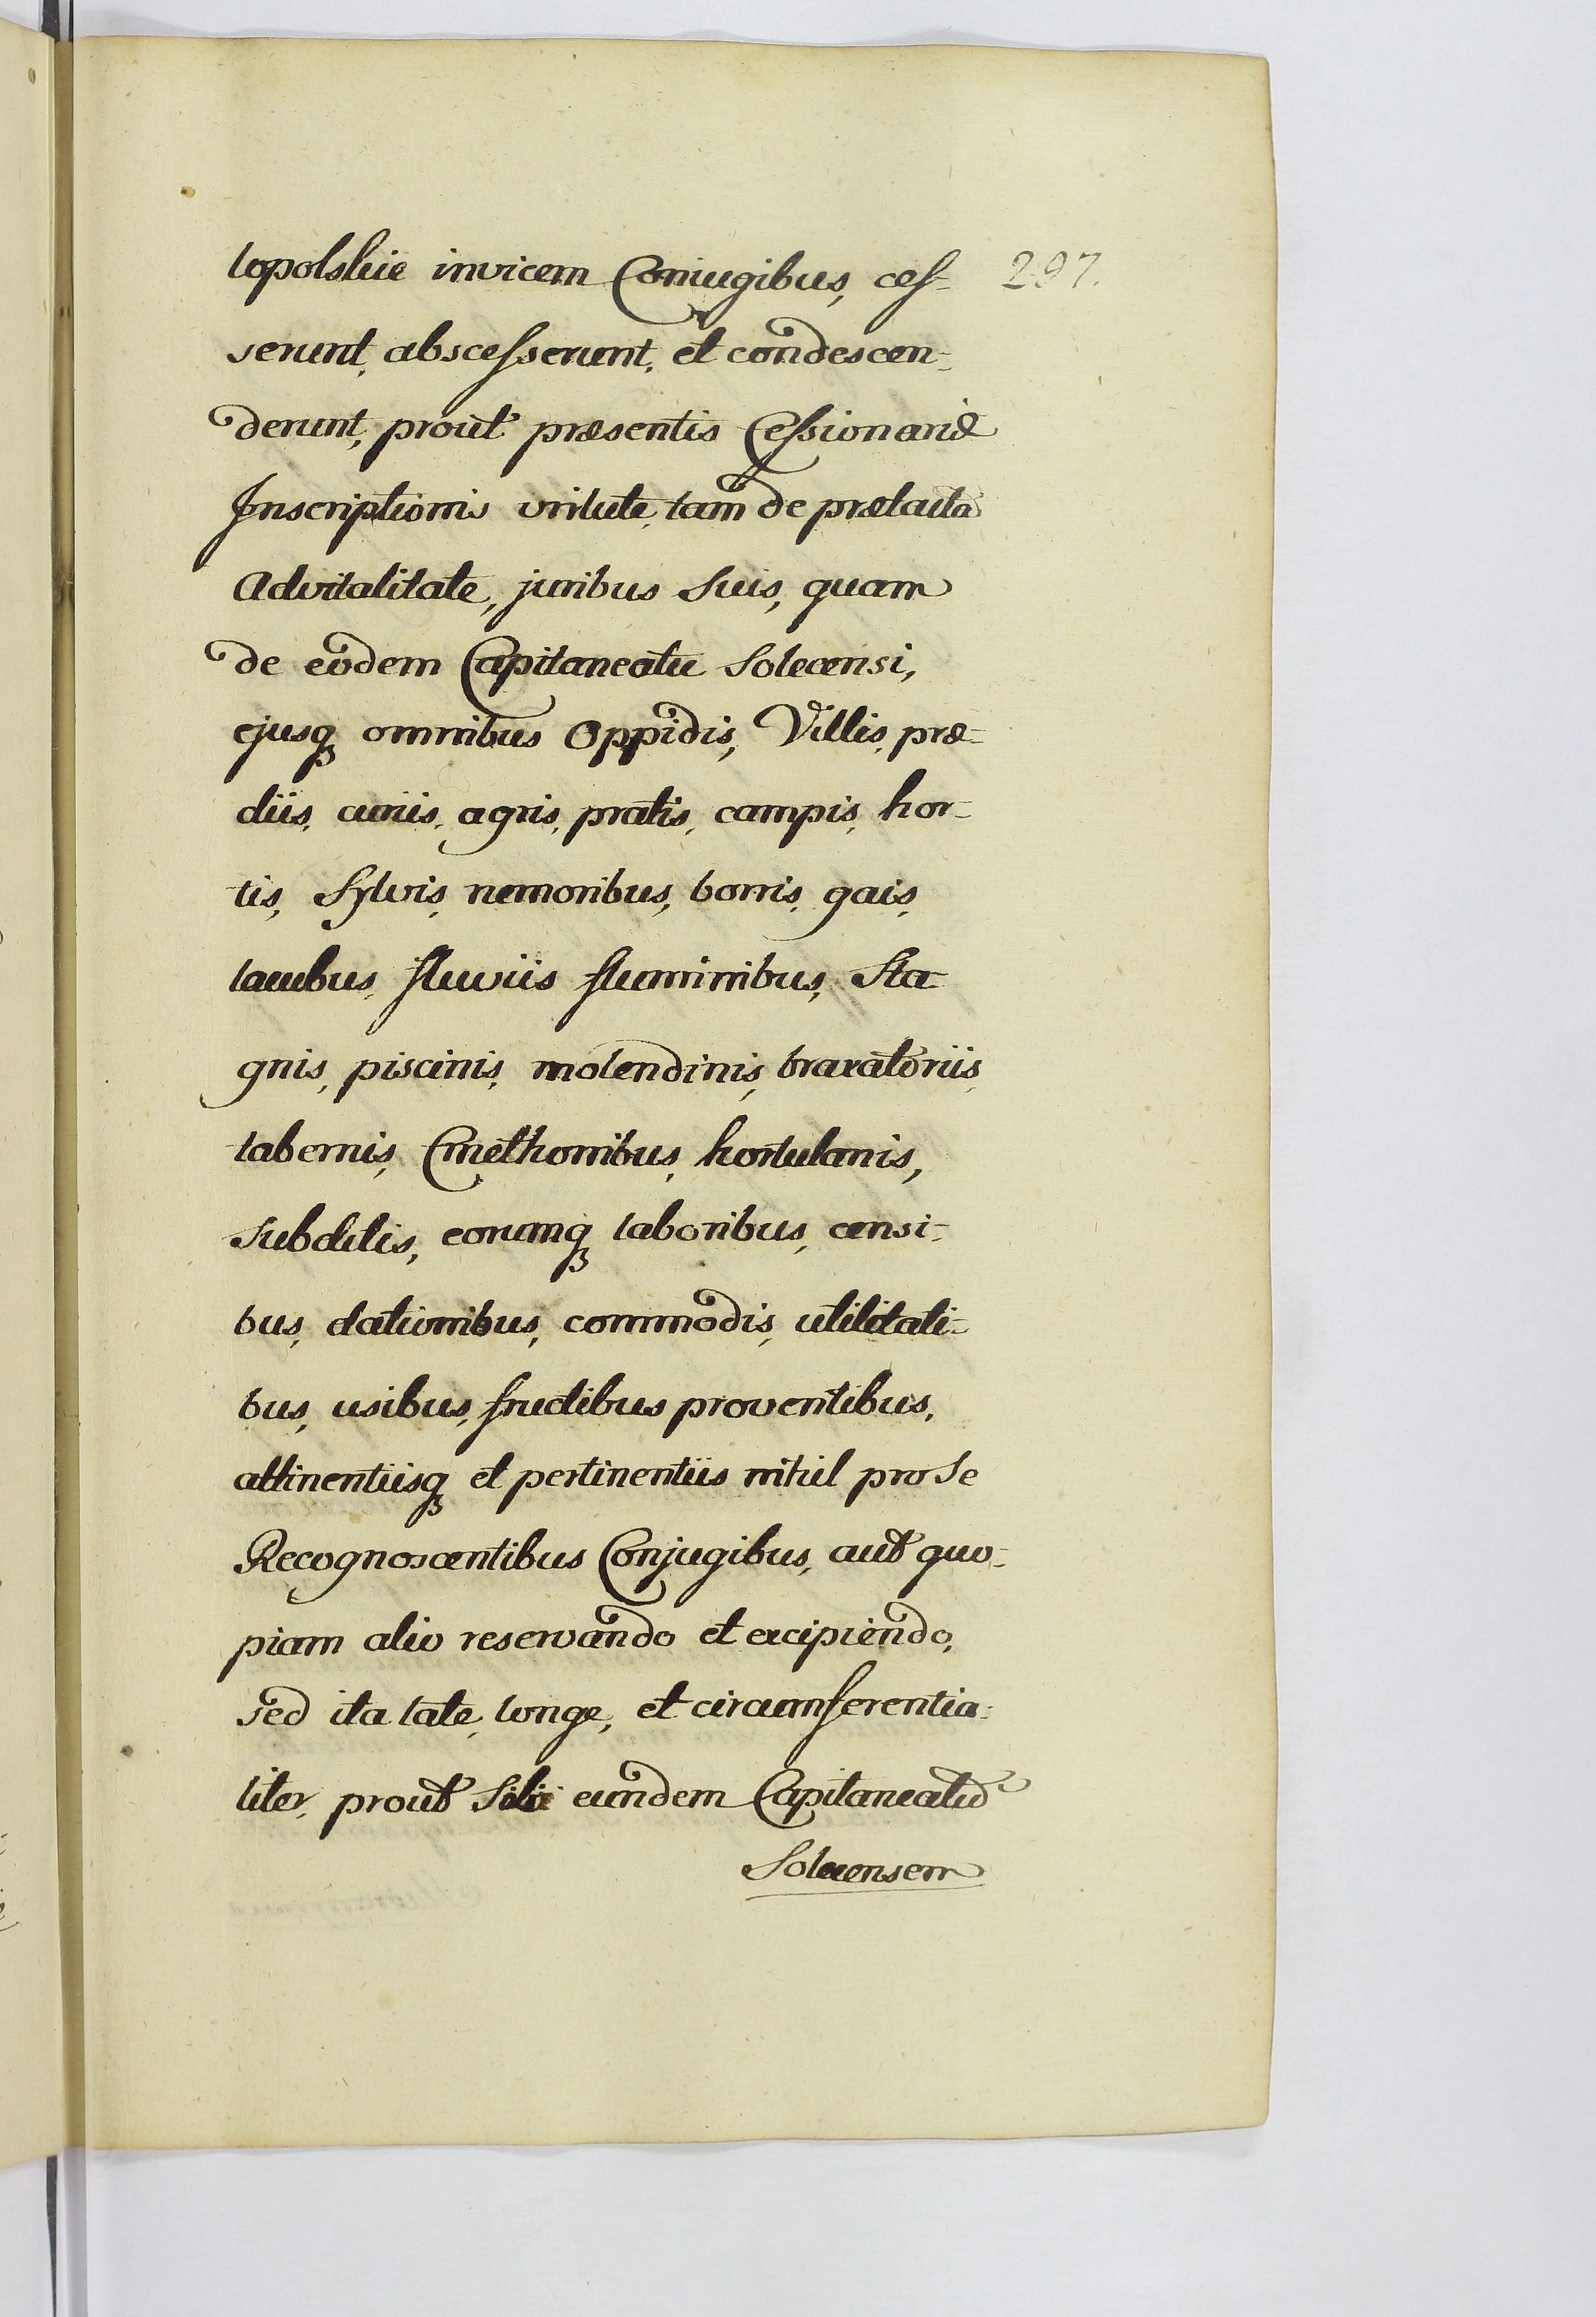 topolskie invicem Coniugibus, ces- 297.
serunt, abscesserunt, et condescen-
derunt, prout præsentis Cessionariæ
Inscriptionis virtute, tam de prætacta
Advitalitate, juribus suis, quam
de eodem Capitaneatu Solecensi,
ejusq omnibus Oppidis, Villis, præ-
diis, curiis, agris, pratis, campis, hor-
tis, Sylvis, nemoribus, borris, gais,
lacubus, fluviis fluminibus, Sta-
gnis, piscinis, molendinis, braxatoriis
tabernis, Cmethonibus, hortulanis,
subditis, eorumq laboribus, censi-
bus, dationibus, commodis, utilitati-
bus, usibus, fructibus proventibus,
attinentiisq et pertinentiis nihil pro se
Recognoscentibus Conjugibus, aut quo-
piam alio reservando et excipiendo,
sed ita late, longe, et circumferentia-
liter, prout Sibi eundem Capitaneatũ
Solecensem